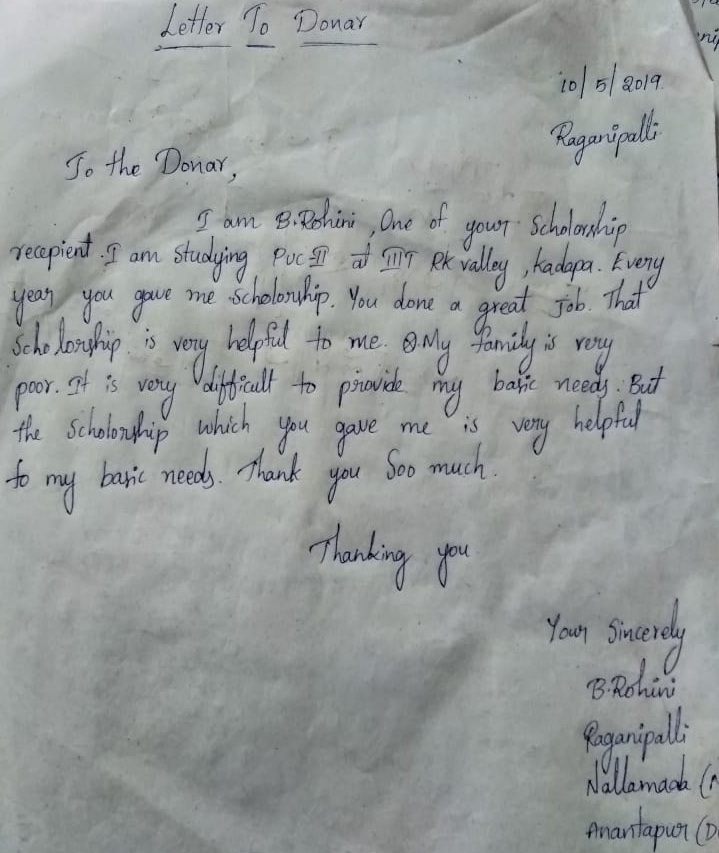 Letter To Donar
10/5/2019
Raganipalli
To the Donar,
I am B.Rohini, One of your Scholorship
recepient. I am Studying PUC-II at IIIT RK valley, kadapa. Every
year you gave me Scholorship. You done a great Job. That
Scholorship is very helpful to me. My family is very
poor. It is very difficult to provide my basic needs. But
the Scholorship which you gave me is very helpful
to my basic needs. Thank you Soo much.
Thanking you
Your Sincerely
B.Rohini
Raganipalli
Nallamada (
Anantapur (D